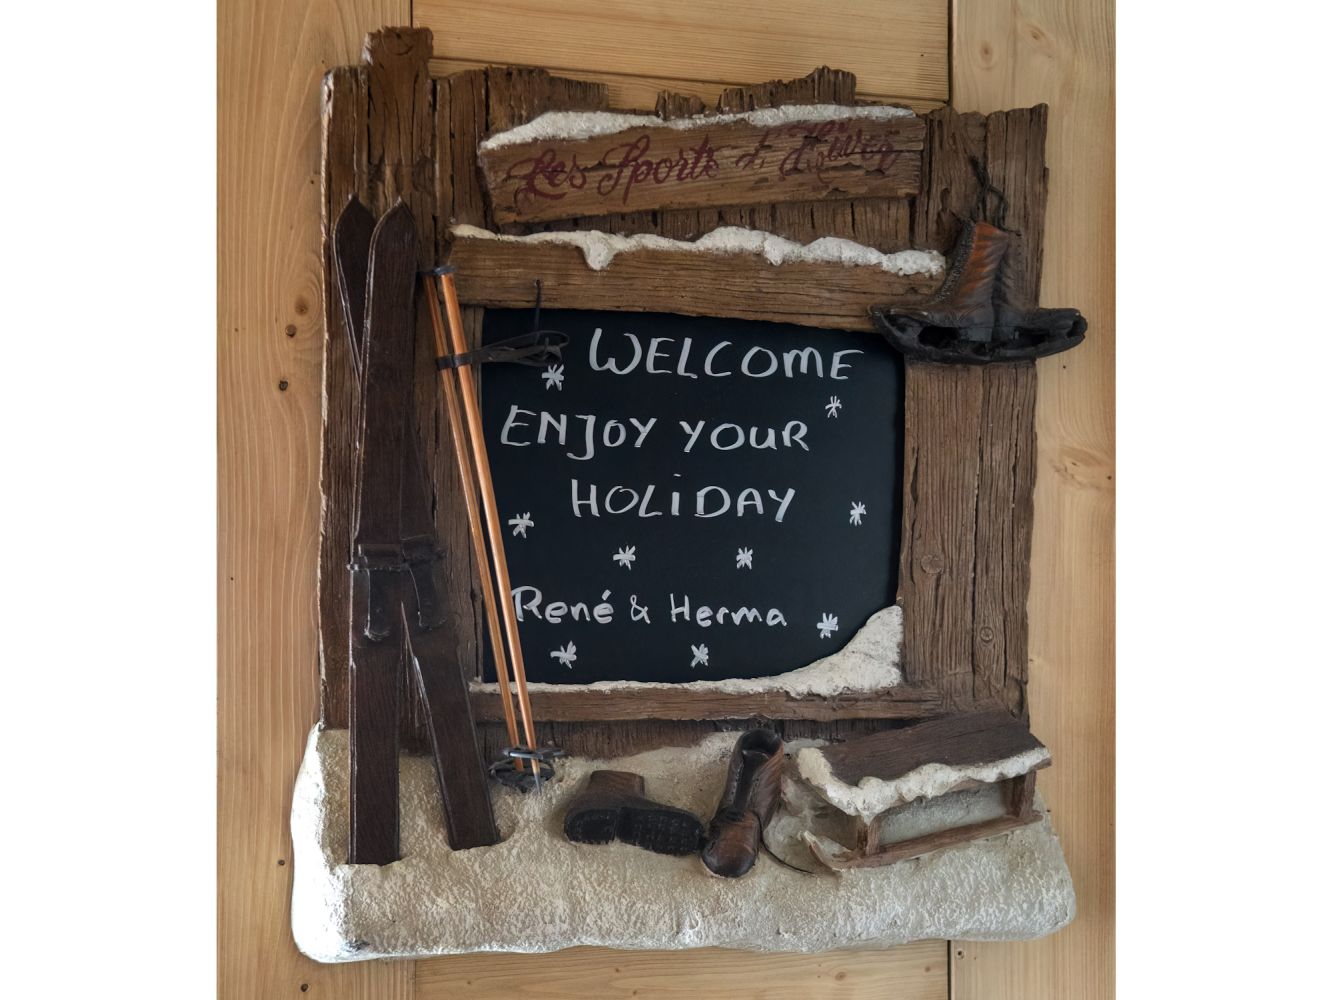 Les Sports d'Hiver
WELCOME
ENJOY YOUR
HOLIDAY
René & Herma